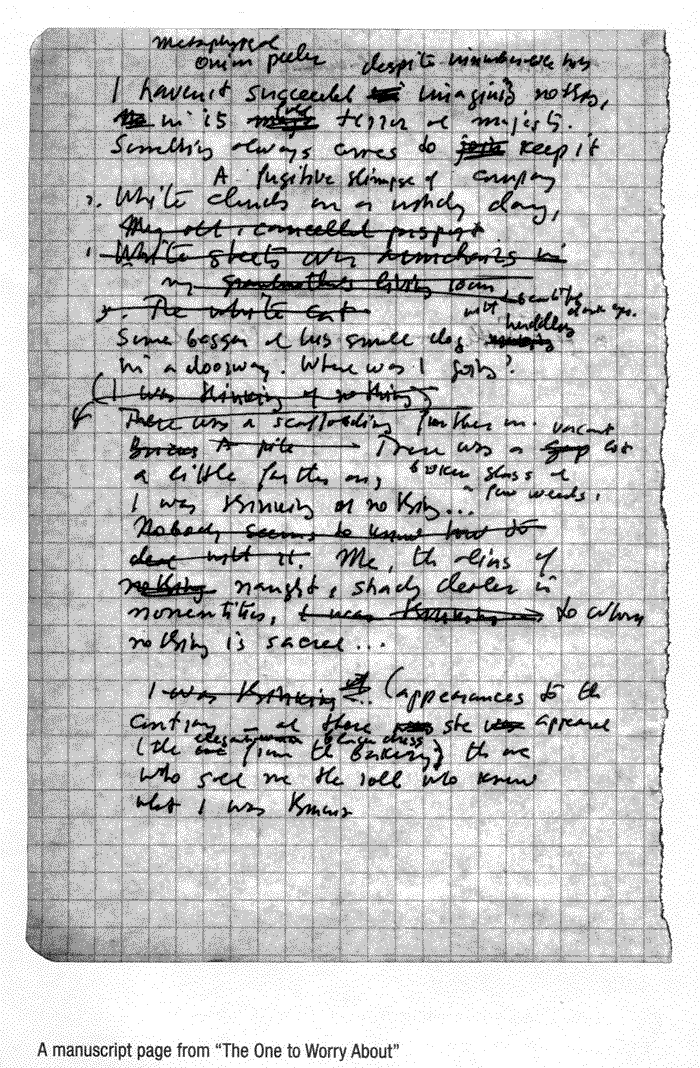 metaphysical
onion peeler despite innumerable tries
I haven't succeeded imagining nothing,
in its full terror and majesty.
Something always comes to join keep it
A fugitive glimpse of company
2. White clouds on a windy day,
They all cancelled passport
1. White sheets over armchairs in
my grandmother's living room
3. The white cat with beautiful dark eyes.
Some beggar and his small dog huddling
in a doorway. Where was I going?
(I was thinking of nothing)
There was a scaffolding further on. vacant
A pile There was a gap lot
a little farther on, broken glass and
a few weeds,
I was thinking of nothing...
Nobody seems to know how to
deal with it. Me, the of
nothing naught, shady dealer in
nonentities, I was thinking to whom
nothing is sacred...
I was thinking of... (appearances to the
contrary – and there she was appeared
(the elegant woman in black dress
from the bakery) the one
who sold me the roll who knew
what I was
A manuscript page from “The One to Worry About”